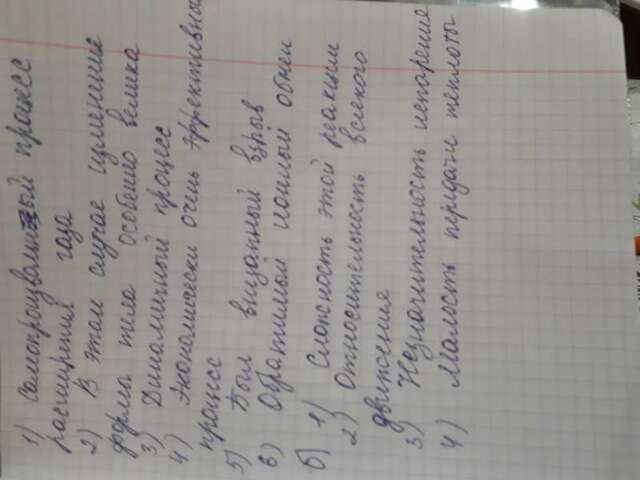 1) Самопроизвольный процесс
расширения газа
2) В этом случае изменение
формы тела особенно велика
3) Динамичный процесс
4) Экономически очень эффективный
процесс
5) Был внезапный взрыв
6) Обратимый ионный обмен
б) 1) Сложность этой реакции
2) Относительность всякого
движения
3) Незначительность испарения
4) Малость передачи теплоты